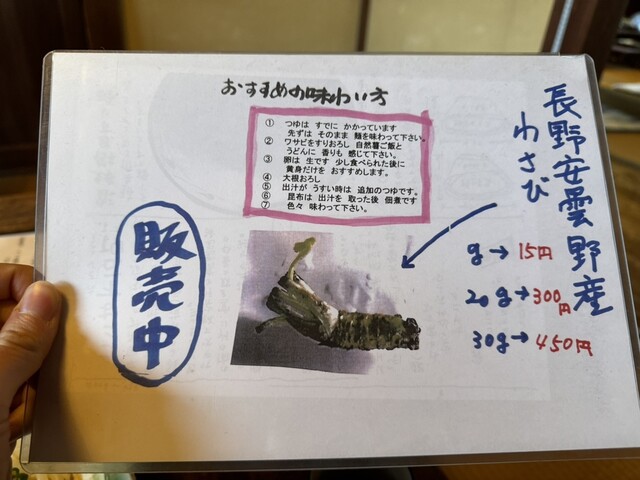 おすすめの味わい方
① つゆは すでに かかっています
先ずは そのまま 麺を味わって下さい。
② ワサビをすりおろし 自然薯ご飯と
うどんに 香りも 感じて下さい。
③ 卵は 生です 少し食べられた後に
黄身だけを おすすめします。
④ 大根おろし
⑤ 出汁が うすい時は 追加のつゆです。
⑥ 昆布は 出汁を 取った後 佃煮です
⑦ 色々 味わって下さい。
長野安曇野産
わさび
g→15円
20g→300円
30g→450円
販売中